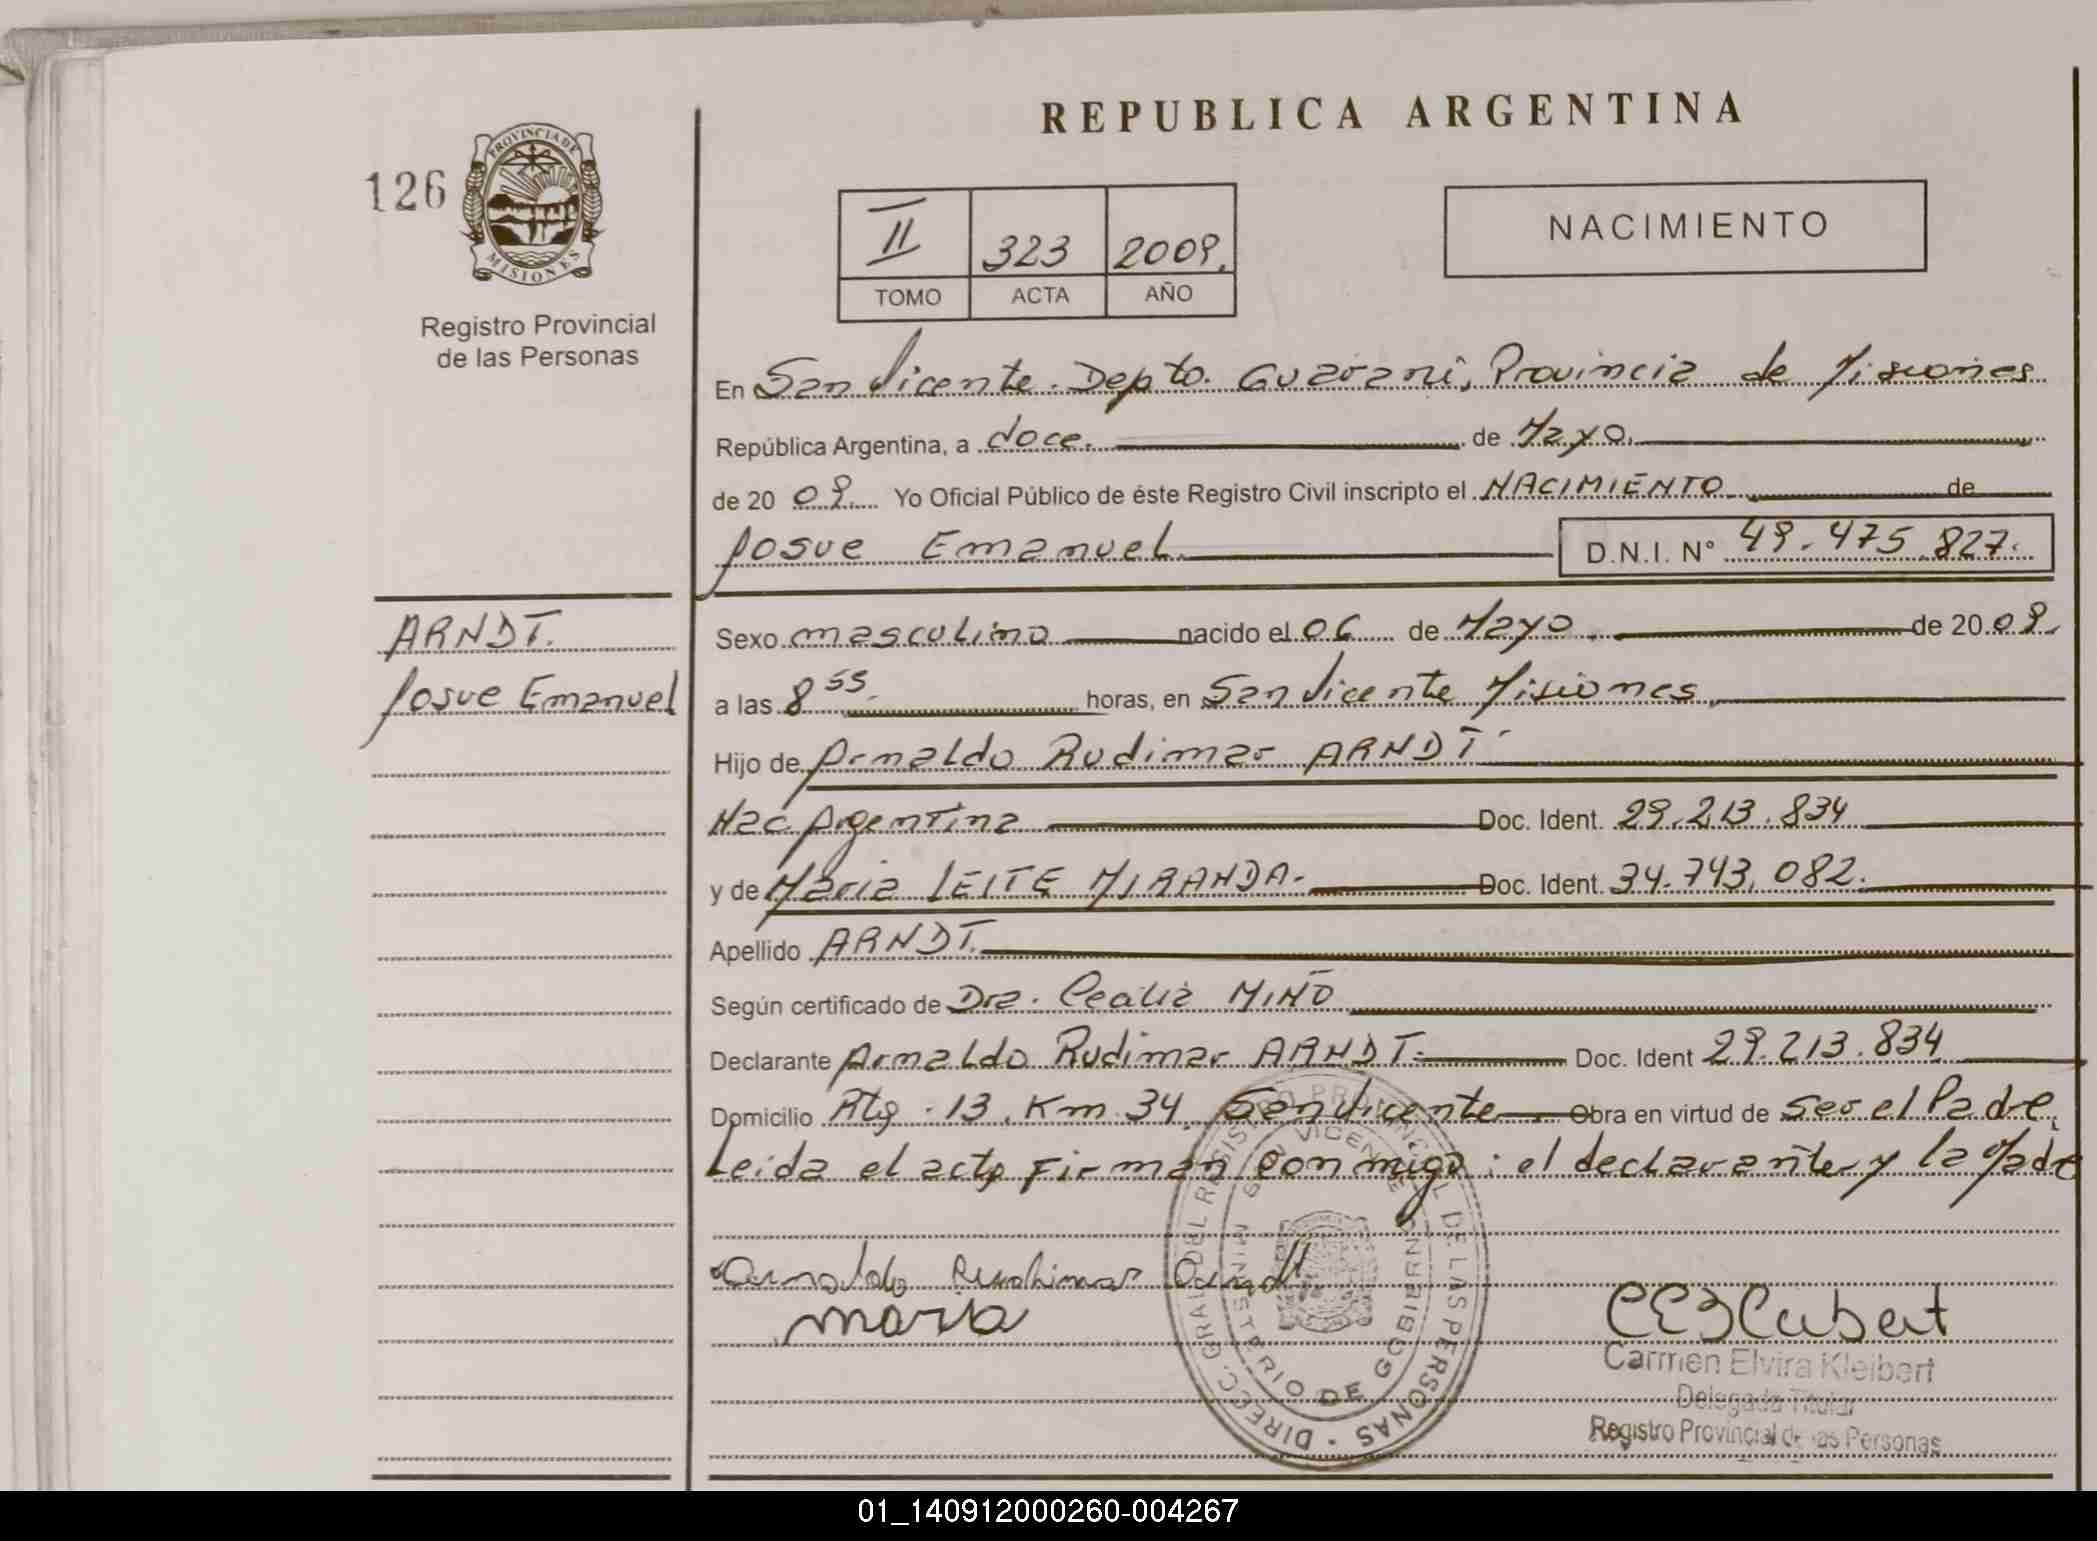 REPUBLICA ARGENTINA
126
PROVINCIA DE
MISIONES
Registro Provincial
de las Personas
II 323 2009.
TOMO ACTA AÑO
NACIMIENTO
En San Vicente. Depto. Guaraní, Provincia de Misiones
República Argentina, a doce. de Mayo.
de 20 09. Yo Oficial Público de éste Registro Civil inscripto el NACIMIENTO de
Josue Emanuel D.N.I. N° 49.475.827.
ARNDT.
Josue Emanuel
Sexo masculino nacido el 06 de Mayo de 20 09.
a las 8 55. horas, en San Vicente Misiones
Hijo de Arnaldo Rudimar ARNDT
Nac Argentina Doc. Ident. 29.213.834
y de Maria LEITE MIRANDA. Doc. Ident. 34.743.082.
Apellido ARNDT.
Según certificado de Dra. MIÑO
Declarante Arnaldo Rudimar ARNDT. Doc. Ident 29.213.834
Domicilio Rta. 13. Km 34. San Vicente Obra en virtud de ser el Padre.
Leida el acta firman conmigo: el declarante y la Madre
Arnaldo Rudimar Arndt
maria
DIRECC. GRAL. DEL REGISTRO PROVINCIAL DE LAS PERSONAS
SAN VICENTE
MINISTERIO DE GOBIERNO
Carmen Elvira Kleibert
Delegada Titular
Registro Provincial de las Personas
01_140912000260-004267